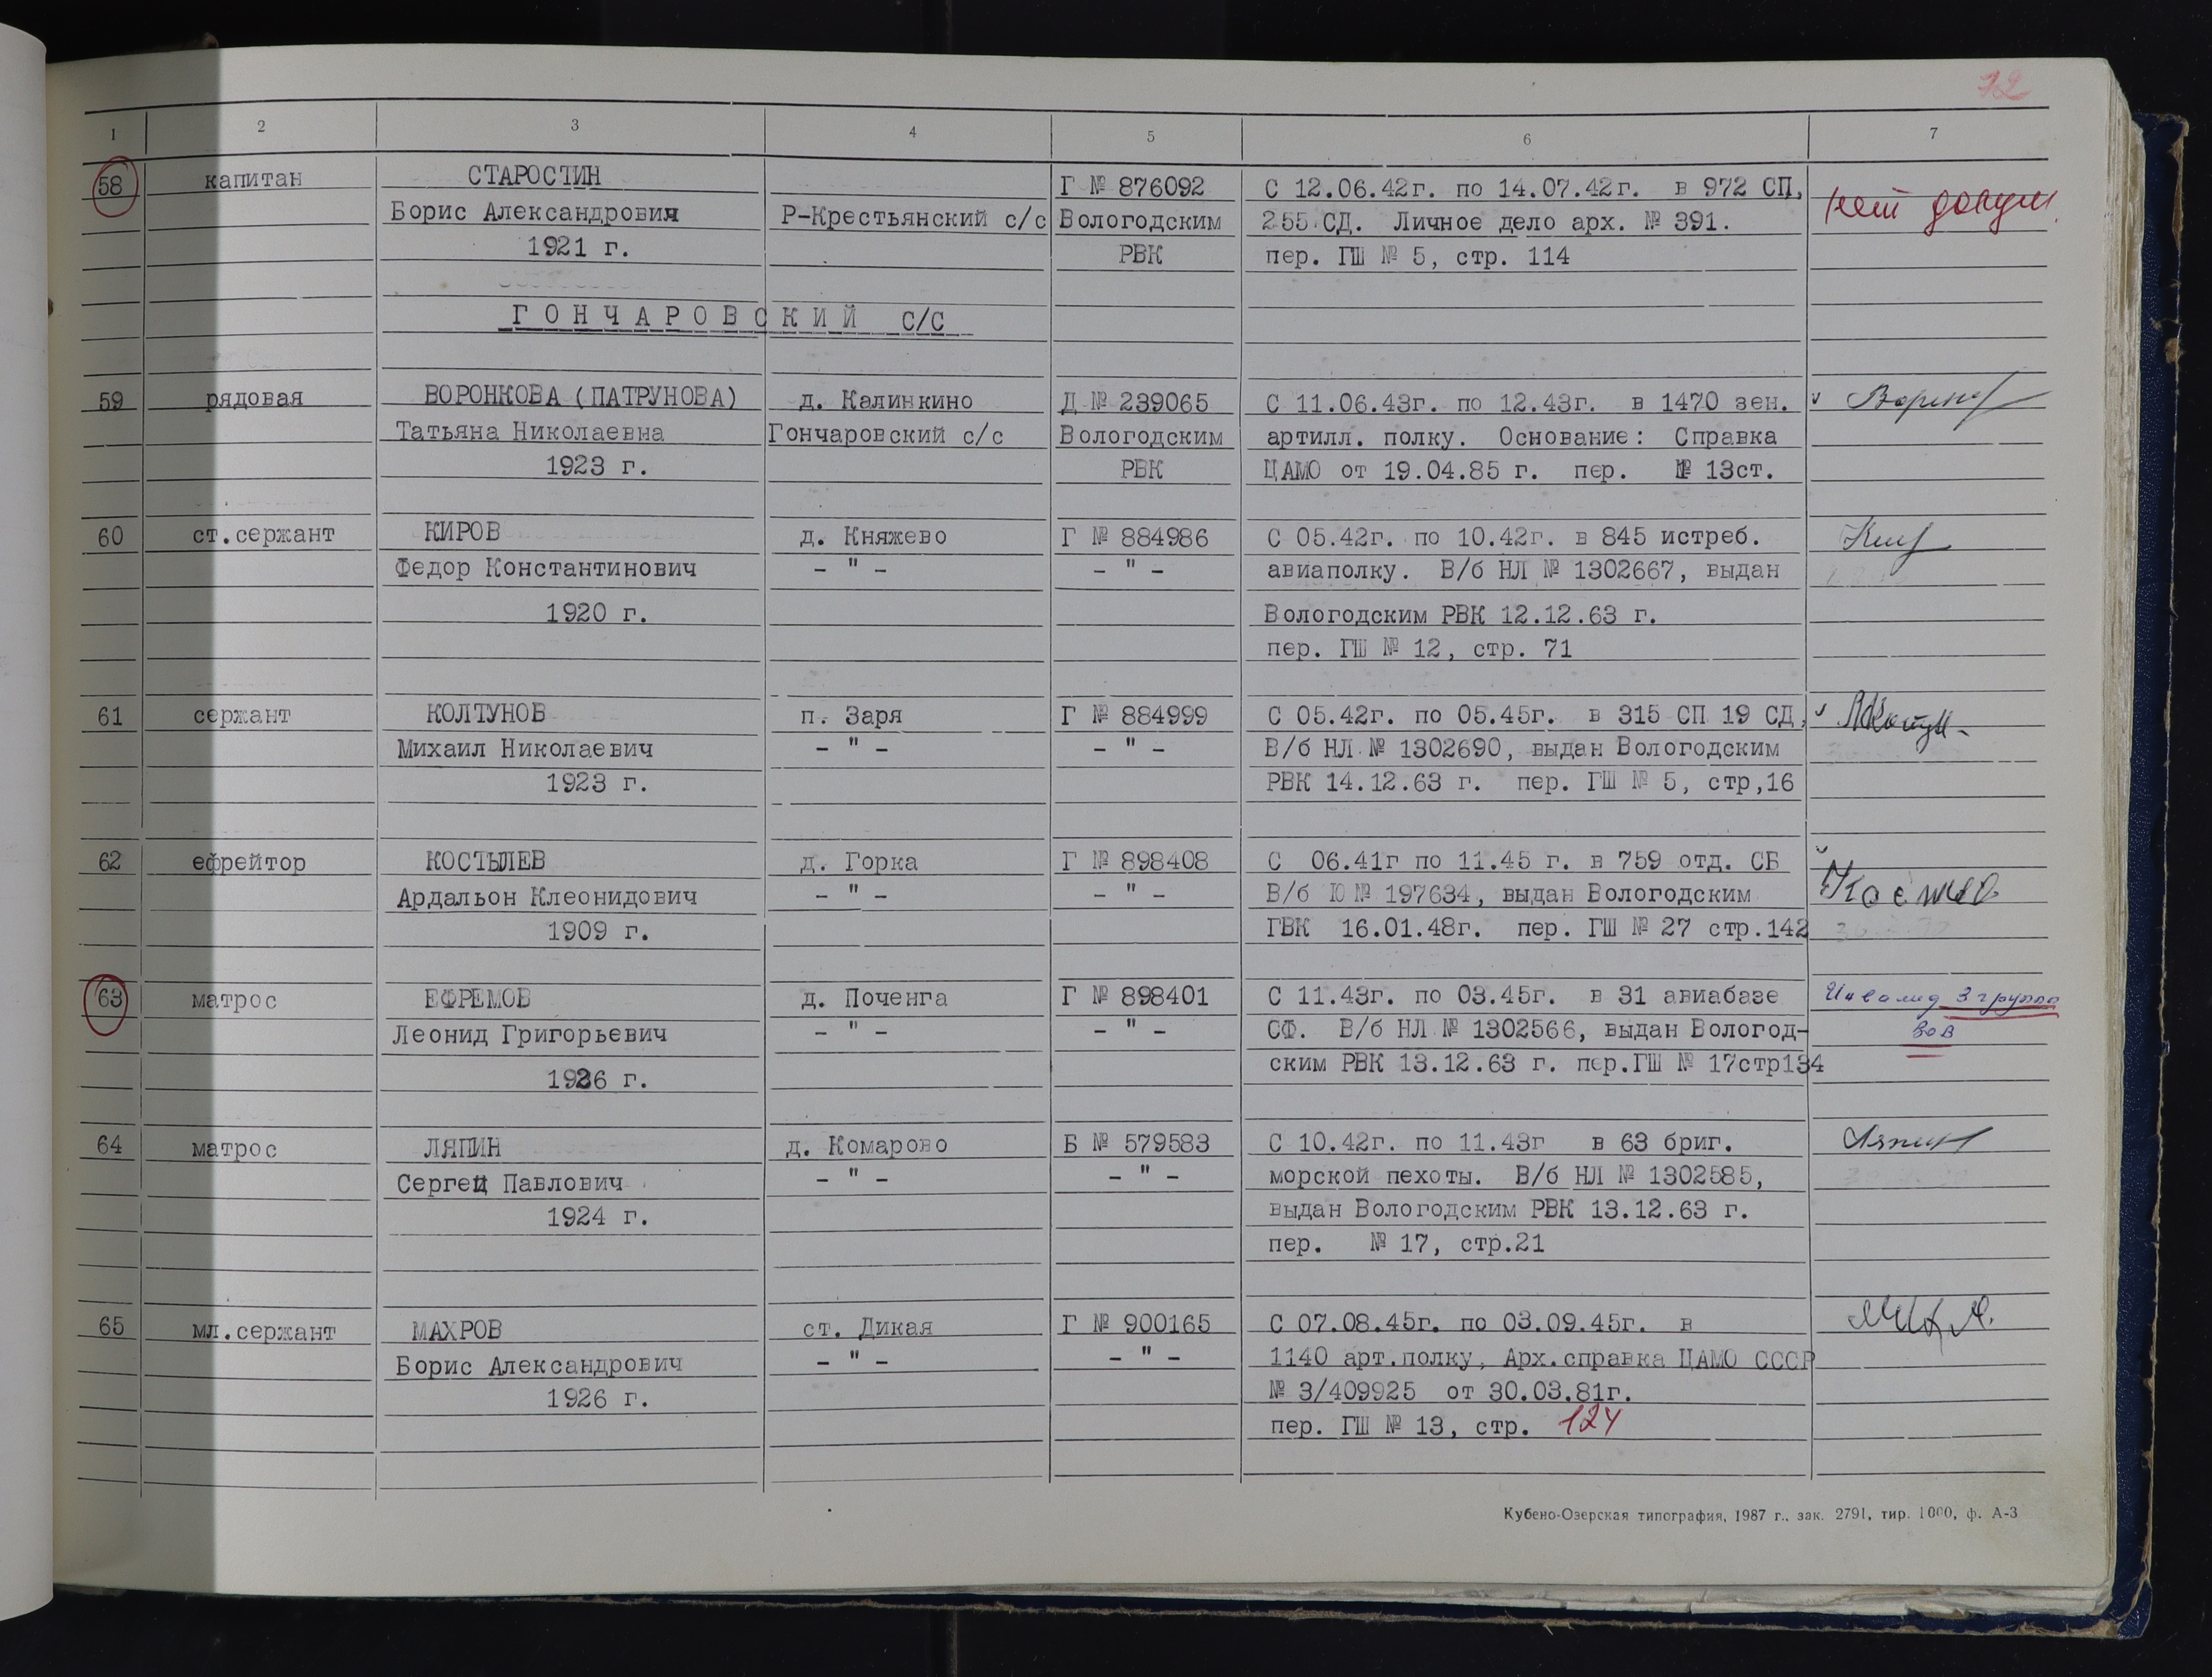 72
1 2 3 4 5 6 7
58 капитан СТАРОСТИН Г № 876092 С 12.06.42г. по 14.07.42г. в 972 СП, нет докум.
Борис Александрович Р-Крестьянский с/с Вологодским 255 СД. Личное дело арх. № 391.
1921 г. РВК пер. ГШ № 5, стр. 114
ГОНЧАРОВСКИЙ С/С
59 рядовая ВОРОНКОВА (ПАТРУНОВА) д. Калинкино Д № 239065 С 11.06.43г. по 12.43г. в 1470 зен.
Татьяна Николаевна Гончаровский с/с Вологодским артилл. полку. Основание: Справка
1923 г. РВК ЦАМО от 19.04.85 г. пер. № 13ст.
60 ст.сержант КИРОВ д. Княжево Г № 884986 С 05.42г. по 10.42г. в 845 истреб.
Федор Константинович - " - - " - авиаполку. В/б НЛ № 1302667, выдан
1920 г. Вологодским РВК 12.12.63 г.
пер. ГШ № 12, стр. 71
61 сержант КОЛТУНОВ п. Заря Г № 884999 С 05.42г. по 05.45г. в 315 СП 19 СД,
Михаил Николаевич - " - - " - В/б НЛ № 1302690, выдан Вологодским
1923 г. РВК 14.12.63 г. пер. ГШ № 5, стр,16
62 ефрейтор КОСТЫЛЕВ д. Горка Г № 898408 С 06.41г по 11.45 г. в 759 отд. СБ
Ардальон Клеонидович - " - - " - В/б Ю № 197634, выдан Вологодским
1909 г. ГВК 16.01.48г. пер. ГШ № 27 стр.142
63 матрос ЕФРЕМОВ д. Поченга Г № 898401 С 11.43г. по 03.45г. в 31 авиабазе Инвалид 3 группы
Леонид Григорьевич - " - - " - СФ. В/б НЛ № 1302566, выдан Вологод- ВОВ
1926 г. ским РВК 13.12.63 г. пер.ГШ № 17стр134
64 матрос ЛЯПИН д. Комарово Б № 579583 С 10.42г. по 11.43г в 63 бриг. Ляпин
Сергей Павлович - " - - " - морской пехоты. В/б НЛ № 1302585,
1924 г. выдан Вологодским РВК 13.12.63 г.
пер. № 17, стр.21
65 мл.сержант МАХРОВ ст. Дикая Г № 900165 С 07.08.45г. по 03.09.45г. в
Борис Александрович - " - - " - 1140 арт.полку, Арх.справка ЦАМО СССР
1926 г. № 3/409925 от 30.03.81г.
пер. ГШ № 13, стр. 124
Кубено-Озерская типография, 1987 г., зак. 2791, тир. 1000, ф. А-3